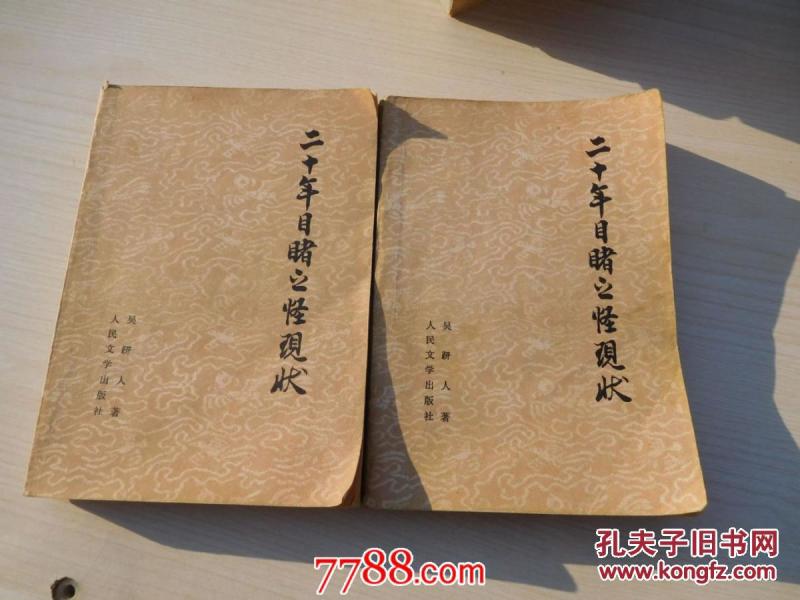 二十年目睹之怪現状
吴趼人著
人民文学出版社
二十年目睹之怪現状
吴趼人著
人民文学出版社
7788.com
孔夫子旧书网
www.kongfz.com